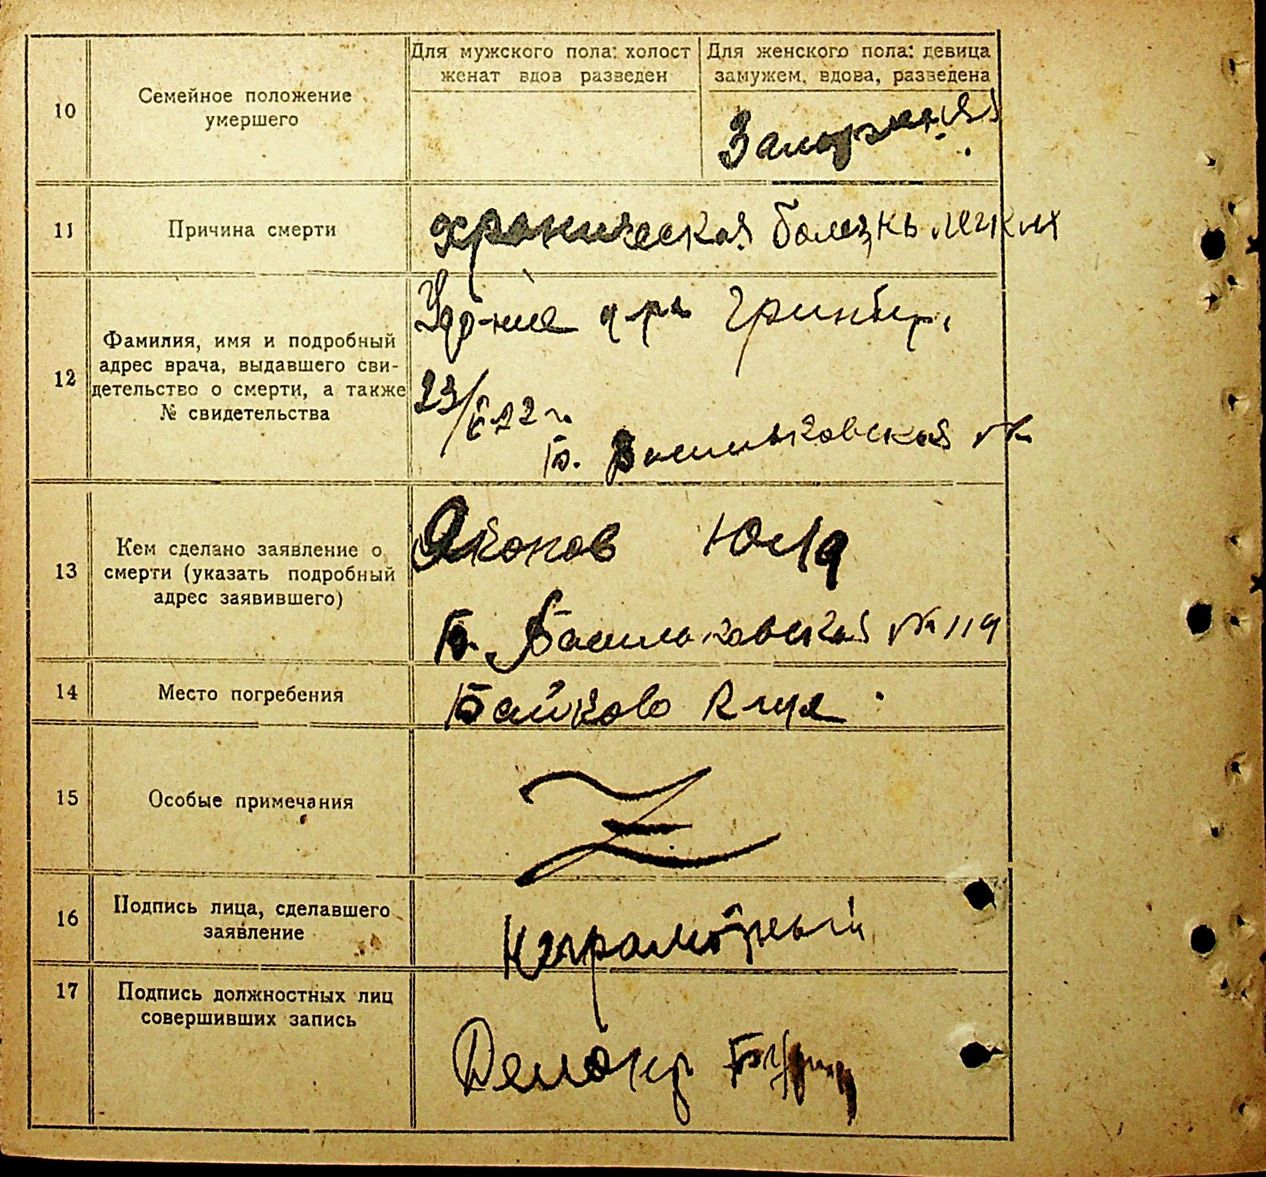 10
Семейное положение
умершего
Для мужского пола: холост
женат вдов разведен
Для женского пола: девица
замужем, вдова, разведена
Замужняя
11
Причина смерти
хроническая болезнь легких
12
Фамилия, имя и подробный
адрес врача, выдавшего сви-
детельство о смерти, а также
№ свидетельства
Удо-ние д-ра Гринбер.
23/6 22 г.
Б. Васильковская №
13
Кем сделано заявление о
смерти (указать подробный
адрес заявившего)
Яконов
Б. Васильковская № 119
14
Место погребения
Байково кл-ще
15
Особые примечания
16
Подпись лица, сделавшего
заявление
Неграмотный
17
Подпись должностных лиц
совершивших запись
Делопр